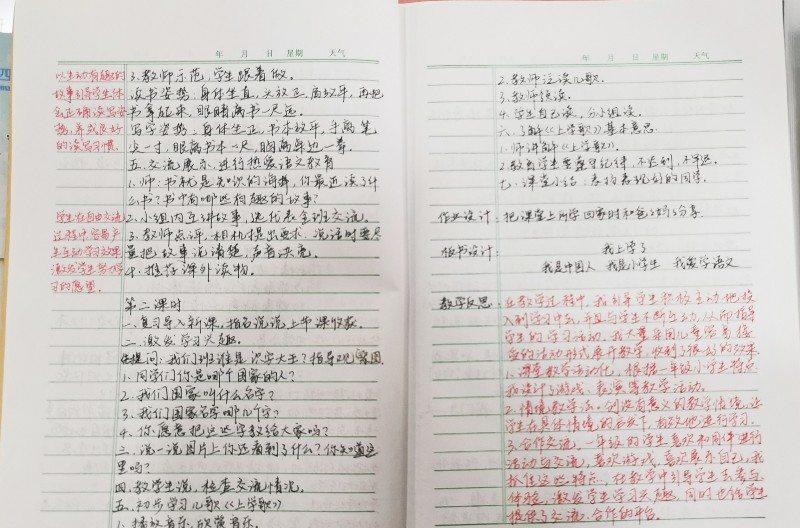 年 月 日 星期 天气
以生动有趣的
故事引导学生体
会正确读写姿
势,养成良好
的读写习惯。
3.教师示范,学生跟着做。
读书姿势:身体坐直,头放正,肩放平,再把
书拿起来,眼睛离书一尺远。
写字姿势:身体坐正,书本放平,手离笔
尖一寸,眼离书本一尺,胸离桌边一拳。
五.交流展示,进行热爱语文教育
1.师:书就是知识的海洋,你最近读了什
么书?书中有哪些有趣的故事?
学生在自由交流
过程中容易产
生互动学习效果
激发学生努力学
习的愿望。
2.小组内互讲故事,选代表全班交流。
3.教师点评,相机提出要求,说话时要尽
量把故事说清楚,声音洪亮。
4.推荐课外读物。
第二课时
一.复习导入新课,指名说说上节课收获。
二.激发学习兴趣。
提问:我们班谁是识字大王?指导观察图
1.同学们你是哪个国家的人?
2.我们国家叫什么名字?
3.我们国家名字哪几个字?
4.你愿意把这些字教给大家吗?
三.说一说图片上你还看到了什么?你知道这
里吗?
四.教学生说,检查交流情况。
五.初步学习儿歌《上学歌》
1.播放音乐,欣赏音乐。
年 月 日 星期 天气
2.教师泛读儿歌。
3.教师领读。
4.学生自己读,分小组读。
六.了解《上学歌》基本意思。
1.师讲解《上学歌》。
2.教育学生要遵守纪律,不迟到,不早退。
七.课堂小结:表扬表现好的同学。
作业设计:把课堂上所学回家时和爸爸妈妈分享。
板书设计: 我上学了
我是中国人 我是小学生 我爱学语文
教学反思:在教学过程中,我引导学生积极主动地投
入到学习中去,并且与学生不断互动,从而指导
学生的学习活动。我大量采用儿童容易接
受的活动形式展开教学,收到了很好的效果。
1.课堂教学活动化。根据一年级小学生特点
我设计了游戏、表演等教学活动。
2.情境教学法。创设有意义的教学情境,让
学生在具体情境的启发下,有效地进行学习。
3.合作交流。一年级的学生喜欢和同伴进行
活动与交流,喜欢游戏,喜欢展示自己,我
抓住这些特点,在教学中引导学生去参与
体验,激发学生学习兴趣,同时也给学生
提供了交流、合作的平台。